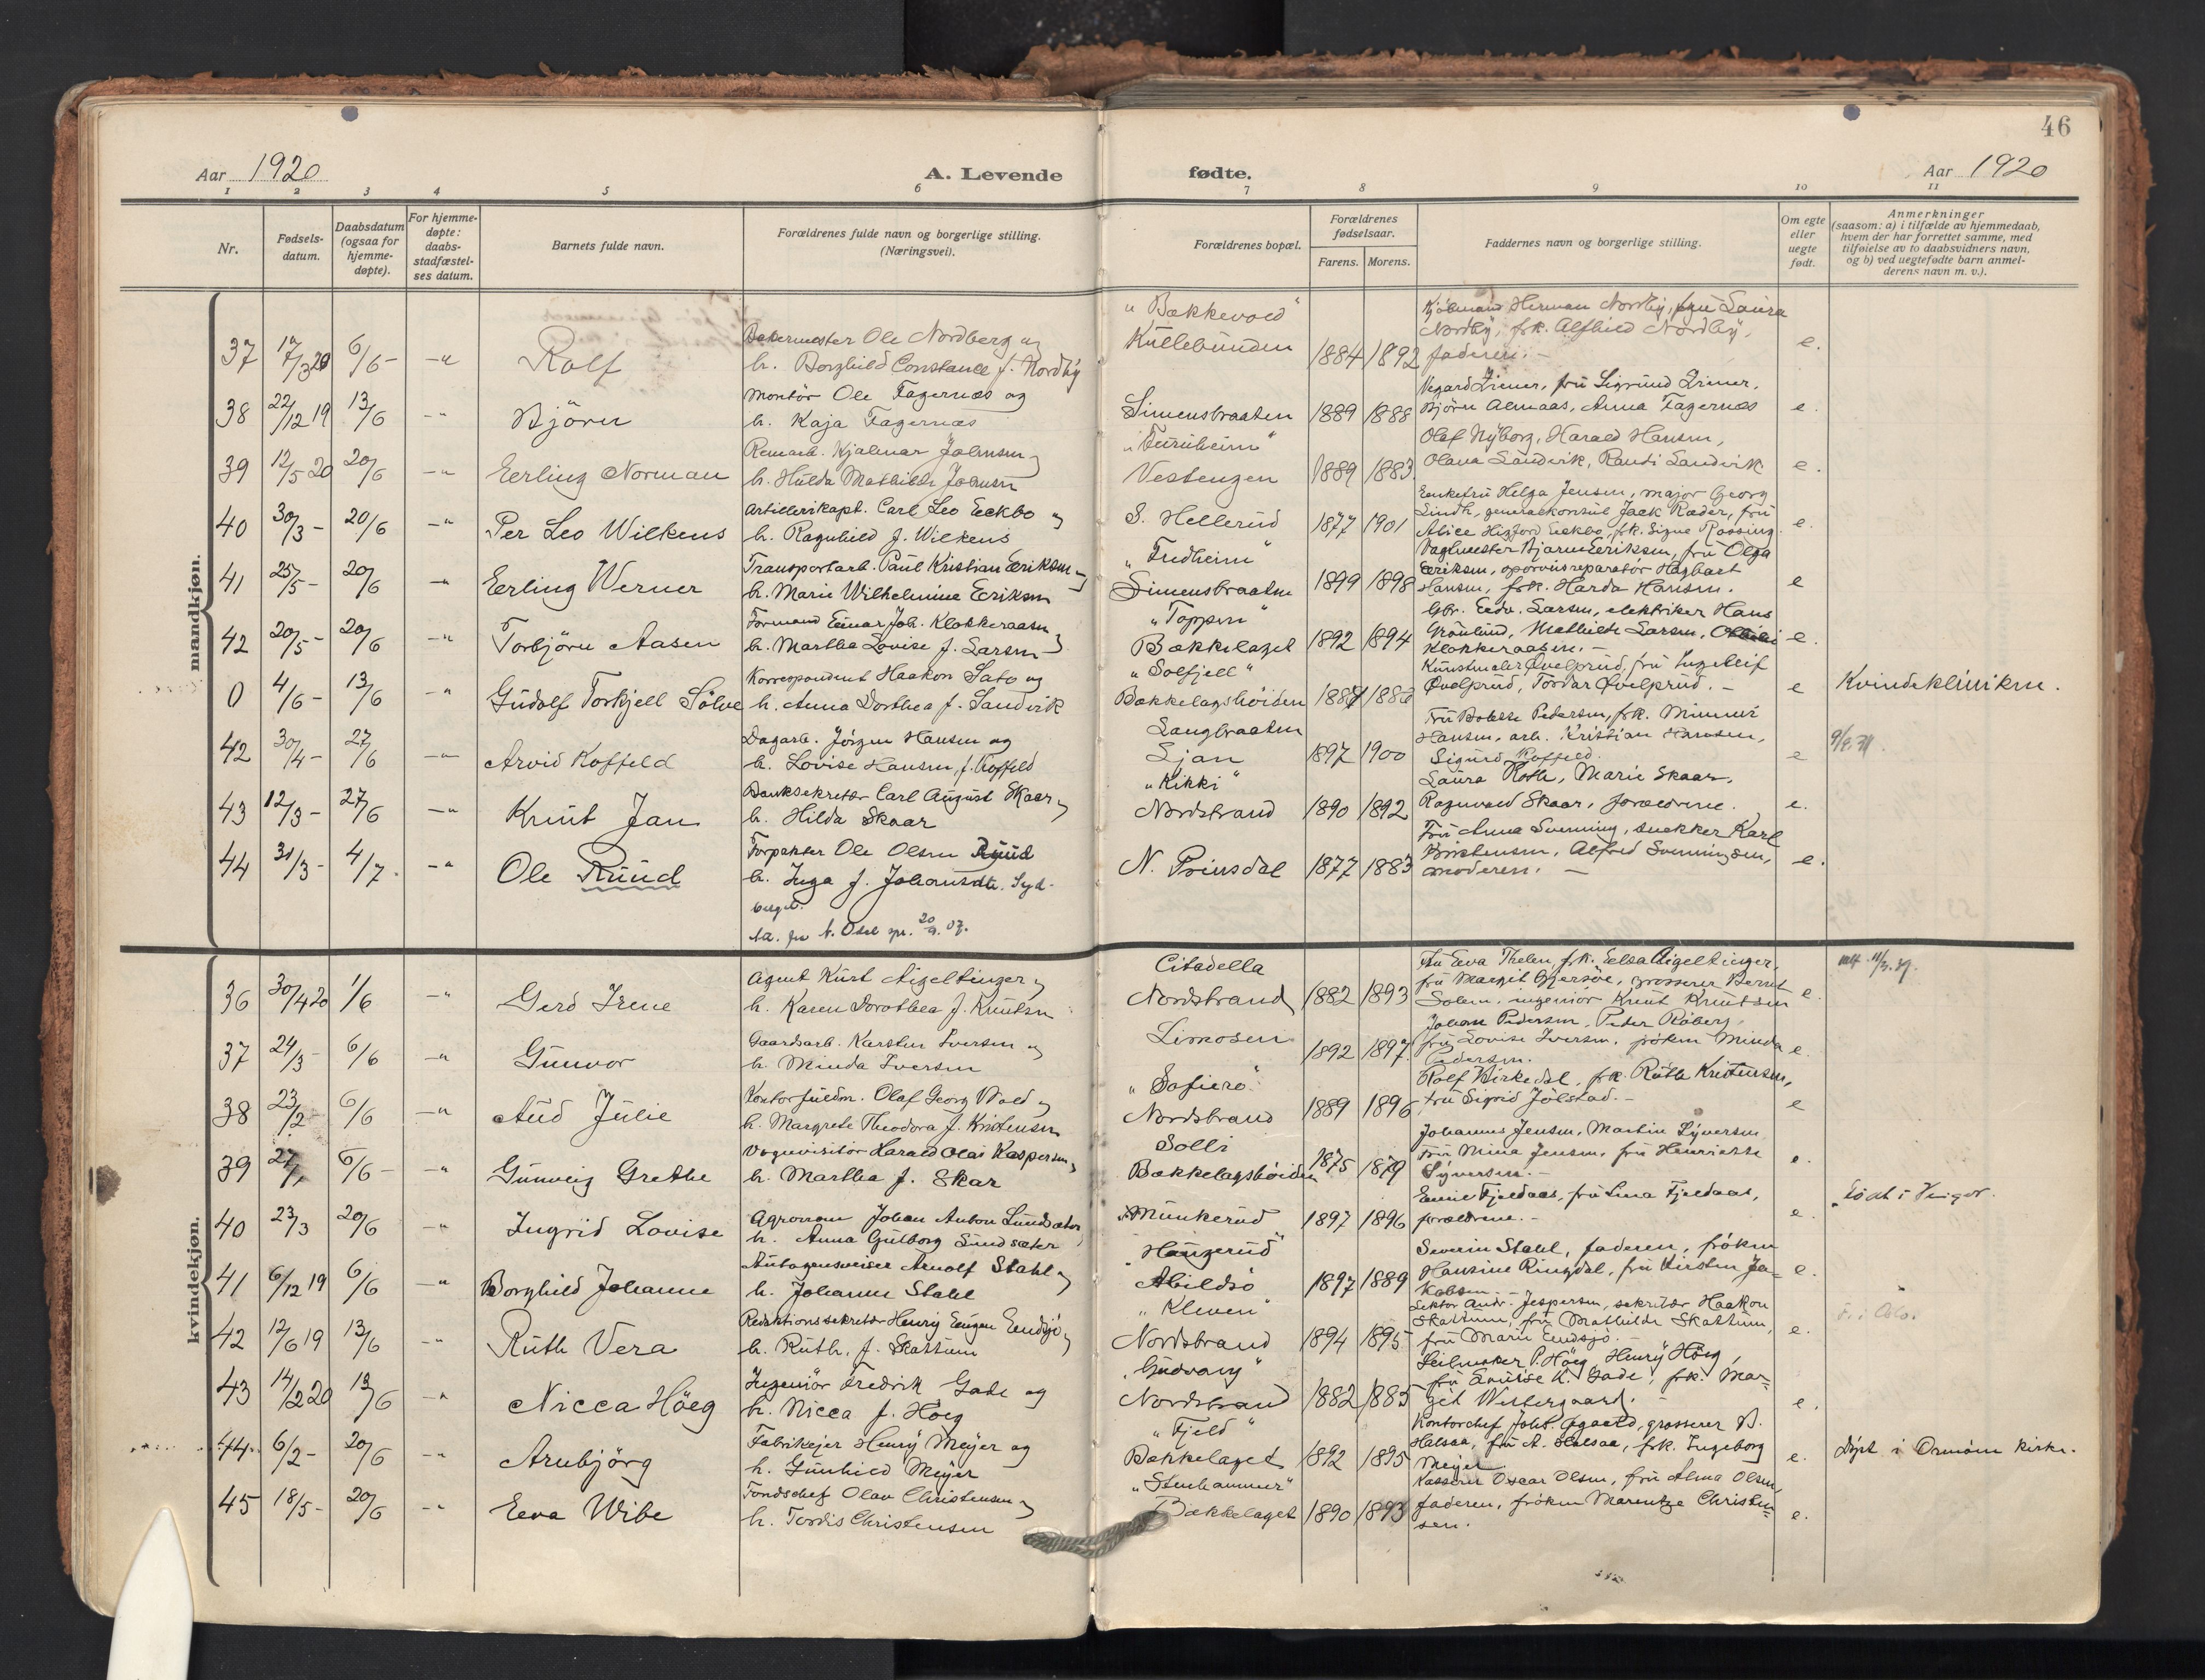 46
Aar 1920
A. Levende fødte.
Aar 1920
1 2 3 4 5 6 7 8 9 10 11
Nr.
Fødsels-
datum.
Daabsdatum
(ogsaa for
hjemme-
døpte).
For hjemme-
døpte:
daabs-
stadfæstel-
ses datum.
Barnets fulde navn.
Forældrenes fulde navn og borgerlige stilling.
(Næringsvei).
Forældrenes bopæl.
Forældrenes
fødselsaar.
Farens. Morens.
Faddernes navn og borgerlige stilling.
Om egte
eller
uegte
født.
Anmerkninger
(saasom: a) i tilfælde av hjemmedaab,
hvem der har forrettet samme, med
tilføielse av to daabsvidners navn,
og b) ved uegtefødte barn anmel-
derens navn m. v.).
mandkjøn.
37 17/3 20 6/6 - -"- Rolf
Bakermester Ole Nordberg og
h. Borghild Constance f. Nordby
"Bakkevold"
Kullebunden 1884 1892
Herman Nordby, fru Laura
Nordby, frk. Alfhild Nordby,
faderen. - e.
38 22/12 19 13/6 -"- Björn
Montör Ole Fagernæs og
h. Kaja Fagernæs
Simensbraaten 1889 1888
Vegard Zimer, fru Sigrund Zimer,
Björn Almaas, Anna Fagernæs e.
39 12/5 20 20/6 -"- Eerling Norman
Hjalmar Johnsen og
h. Hulda Mathilde Johnsen
"Furuheim"
Vestengen 1889 1883
Olaf Nyborg, Harald Hansen,
Olava Sandvik, Randi Sandvik e.
40 30/3 - 20/6 -"- Per Leo Wilkens
Artillerikapt. Carl Leo Eeckbo og
h. Ragnhild f. Wilkens
S. Hellerud 1877 1901
Enkefru Helga Jensen, major Georg
Lindh, generalkonsul Jack Ræder, fru
Alice Eeckbo, frk. Signe e.
41 25/5 - 20/6 -"- Eerling Werner
Transportarb. Paul Kristian Eeriksen og
h. Marie Wilhelmine Eeriksen
"Fredheim"
Simensbraaten 1899 1898
Bjarne Eeriksen, fru Olga
Eeriksen, sporveisreparatör Hagbart
Hansen, frk. Harda Hansen. e
42 20/5 - 20/6 -"- Torbjörn Aasen
Formand Einar Joh. Klokkeraasen og
h. Martha Lovise f. Larsen
"Toppen"
Bækkelaget 1892 1894
Gbr. Eedv. Larsen, elektriker Hans
Grönlund, Mathilde Larsen,
Klokkeraasen. - e.
0 4/6 - 13/6 -"- Gudolf Torkjell Sölve
Korrespondent Haakon Sato og
h. Anna Dorthea f. Sandvik
"Solfjell"
Bækkelagshöiden
Kunstmaler Øvelprud, fru Ingeleif
Øvelprud, Tordar Øvelprud. - e
Kvindekliniken.
42 30/4 - 27/6 -"- Arvid Koffeld
Dagarb. Jörgen Hansen og
h. Lovise Hansen, f. Koffeld
Langbraaten
Ljan 1897 1900
Pedersen, frk.
Hansen, arb. Kristian Hansen,
Sigurd Koffeld. e
43 12/3 - 27/6 -"- Knut Jan
Banksekretær Carl August Skaar og
h. Hilda Skaar
"Kikki"
Nordstrand 1890 1892
Laura Roth, Marie Skaar,
Ragnvald Skaar, forældrene. e.
44 31/3 - 4/7. -"- Ole Ruud
Forpakter Ole Olsen Ruud
h. Inga f. Johansdtr.
N. Prinsdal 1877 1883
Fru Anna Svenning, snekker Karl
Kristensen, Alfred Svenningsen,
moderen. - e.
kvindekjøn.
36 30/4 20 1/6 -"- Gerd Irene
Agent Kurt Aigeltinger og
h. Karen Dorothea f. Knutsen
Citadella
Nordstrand 1882 1893
Fru Eeva Thelen, frk. Eelsa Aigeltinger,
fru Margit Gjersöe, grosserer Bernt
Solem, ingeniör Knut Knutsen e.
37 24/3 - 6/6 -"- Gunvor
Gaardsarb. Karsten Iversen og
h. Minda Iversen
Limosen 1892 1897
Johan Pedersen, Peder Röberg,
fru Lovise Iversen, fröken Minda
Pedersen. e.
38 23/2 - 6/6 -"- Aud Julie
Kontorfuldm. Olaf Georg Wold og
h. Margrete Theodora f. Kristensen
"Sofiero"
Nordstrand 1889 1896
Rolf Birkedal, frk. Ruth Kristensen,
fru Sigrid Jölstad. - e
39 6/6 - -"- Gunveig Grethe
Vognvisitör Harald Olai Kaspersen og
h. Martha f. Skar
Solli
Bækkelagshöiden 1875 1879
Johannes Jensen, Martin Syversen
fru Mina Jensen, fru Henriette
Syversen. - e.
40 23/3 20/6 -"- Ingrid Lovise
Agronom Johan Anton Sundsæter
h. Anna Gulborg Sundsæter
Munkerud 1897 1896
Eemil Fjeldaas, fru Lina Fjeldaas,
forældrene. - e.
Födt i Vinger.
41 6/12 19 6/6 -"- Borghild Johanne
Autogensveiser Arnolf Stahl og
h. Johanne Stahl
"Haugerud"
Abildsö 1897 1889
Severin Stahl, faderen, fröken
Hansine Ringdal, fru Kirsten Ja-
kobsen. - e.
42 12/6 19 13/6 -"- Ruth Vera
Redaktionssekretær Henry Eugen Eendsjö og
h. Ruth, f. Skattum
"Kleven"
Nordstrand 1894 1895
Lektor Andr. Jespersen, sekretær Haakon
Skattum, fru Mathilde Skattum,
fru Marie Eendsjö. - e.
F. i Oslo.
43 14/2 20 13/6 -"- Nicca Höeg
Ingeniör Fredrik Gade og
h. Nicca f. Höeg
"Gudvang"
Nordstrand 1882 1885
Seilmaker P. Höeg, Henry Höeg,
fru Louise K. Gade, frk. Mar-
git Westergaard. e.
44 6/2 - 20/6 -"- Arnbjörg
Fabrikejer Henry Meyer og
h. Gunhild Meyer
"Fjeld"
Bækkelaget 1892 1895
Kontorchef Johs. Øgaard, grosserer B.
Halsaa, fru A. Halsaa, frk. Ingeborg
Meyer. e.
Döpt i Ormöen kirke.
45 18/5 - 20/6 -"- Eeva Wibe
Fondschef Olav Christensen og
h. Tordis Christensen
"Stenhammer"
Bækkelaget 1890 1893
Kasserer Oscar Olsen, fru Alma Olsen,
faderen, fröken Marentze Christen-
sen. e.